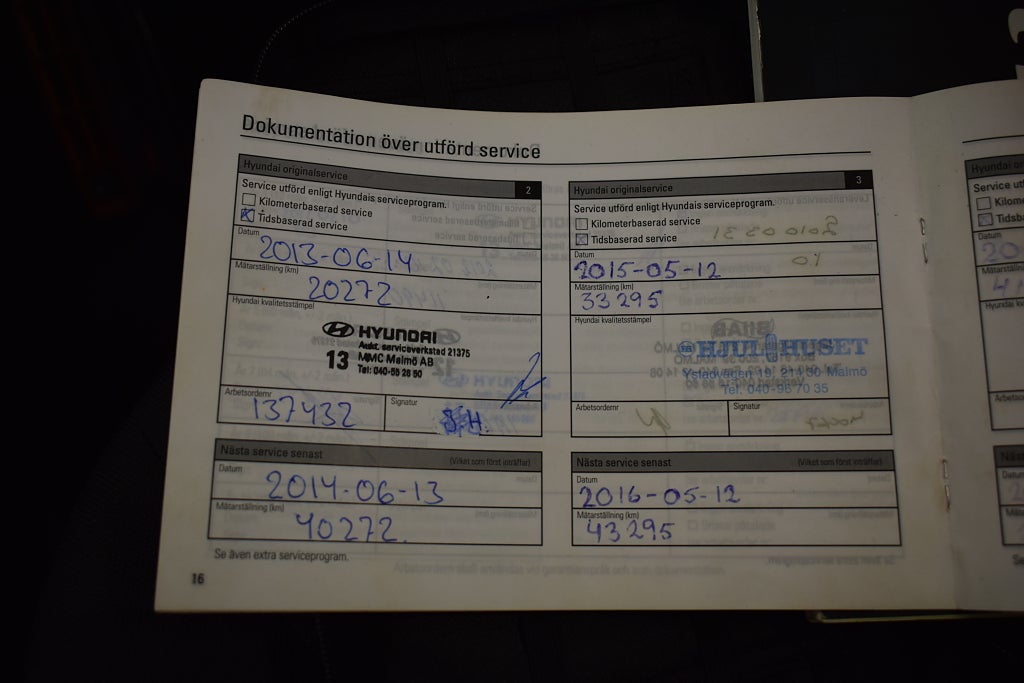 Dokumentation över utförd service
Hyundai originalservice 2
Service utförd enligt Hyundais serviceprogram.
Kilometerbaserad service
Tidsbaserad service
Datum
2013-06-14
Mätarställning (km)
20272
Hyundai kvalitetsstämpel
HYUNDAI
Aukt. serviceverkstad 21375
13 MMC Malmö AB
Tel: 040-55 28 50
Arbetsordernr
137432
Signatur
Nästa service senast (Vilket som först inträffar)
Datum
2014-06-13
Mätarställning (km)
40272
Se även extra serviceprogram.
16
Hyundai originalservice 3
Service utförd enligt Hyundais serviceprogram.
Kilometerbaserad service
Tidsbaserad service
Datum
2015-05-12
Mätarställning (km)
33295
Hyundai kvalitetsstämpel
HJULHUSET
Ystadvägen 19, 214 30 Malmö
Tel. 040-96 70 35
Arbetsordernr
Signatur
Nästa service senast (Vilket som först inträffar)
Datum
2016-05-12
Mätarställning (km)
43295